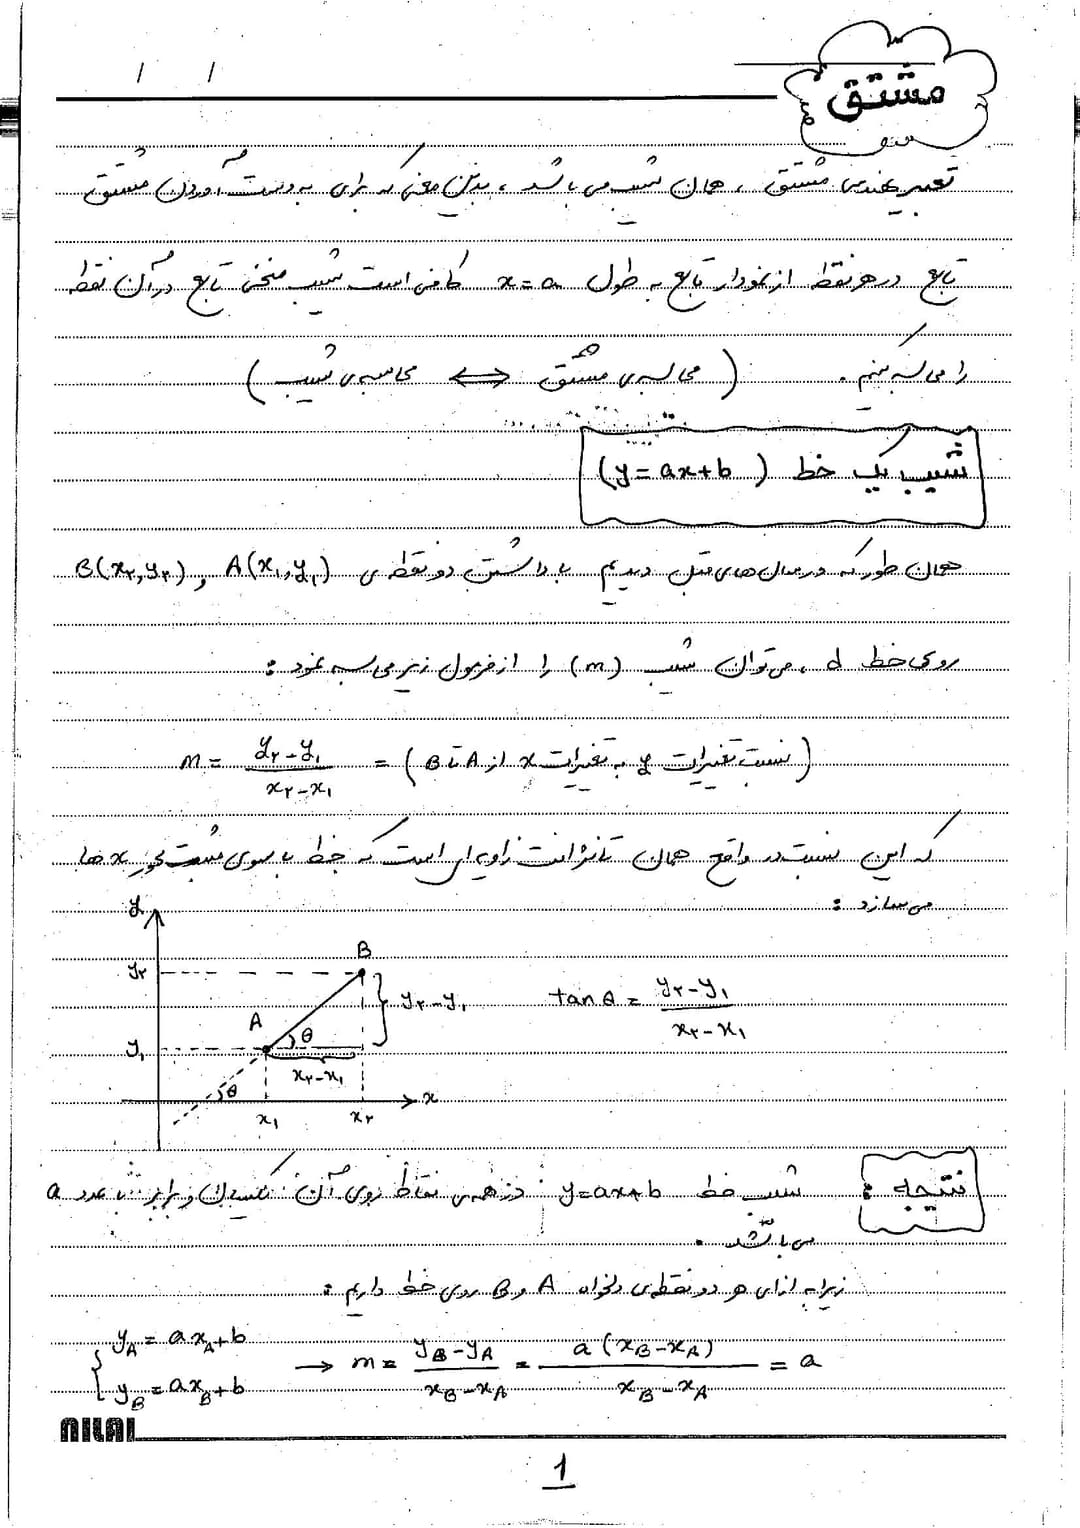 مشتق
تعبیر هندسی مشتق ، همان شیب می باشد ، بدین معنی که برای به دست آوردن مشتق
تابع در هر نقطه از نمودار تابع به طول x = a کافی است شیب منحنی تابع در آن نقطه
را محاسبه کنیم . ( محاسبه ی مشتق ⟺ محاسبه ی شیب )
شیب یک خط ( y = ax + b )
همان طور که در سال های قبل دیدیم با داشتن دو نقطه ی A(x₁,y₁) , B(x₂,y₂)
روی خط d ، می توان شیب (m) را از فرمول زیر محاسبه نمود :
m = (y₂ - y₁)/(x₂ - x₁) = ( نسبت تغییرات y به تغییرات x از A تا B )
که این نسبت در واقع همان تانژانت زاویه ای است که خط با سوی مثبت محور x ها
می سازد :
y
y₂ B
y₂ - y₁ tan θ = (y₂ - y₁)/(x₂ - x₁)
A
y₁ θ
x₂ - x₁
θ x
x₁ x₂
نتیجه : شیب خط y = ax + b در همه ی نقاط روی آن یکسان و برابر با عدد a
می باشد .
زیرا به ازای هر دو نقطه ی دلخواه A و B روی خط داریم :
{ y_A = ax_A + b
y_B = ax_B + b → m = (y_B - y_A)/(x_B - x_A) = a(x_B - x_A)/(x_B - x_A) = a
NILAI
1